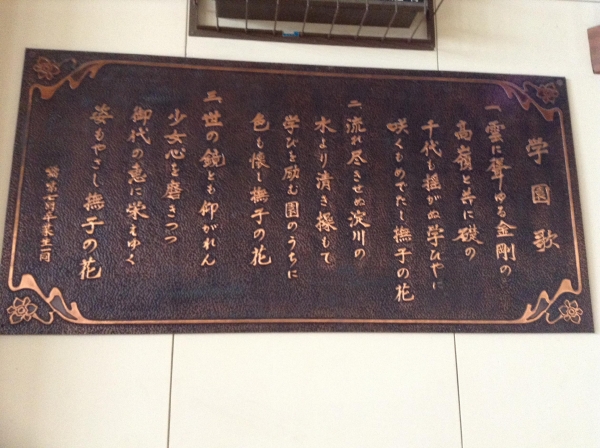 学園歌
一 雲に聳ゆる金剛の
高嶺と共に礎の
千代も揺がぬ学びやに
咲くもめでたし撫子の花
二 流れ尽きせぬ淀川の
水より清き操もて
学びを励む園のうちに
色も懐し撫子の花
三 世の鏡とも仰がれん
少女心を磨きつつ
御代の恵に栄えゆく
姿もやさし撫子の花
第七回卒業生一同